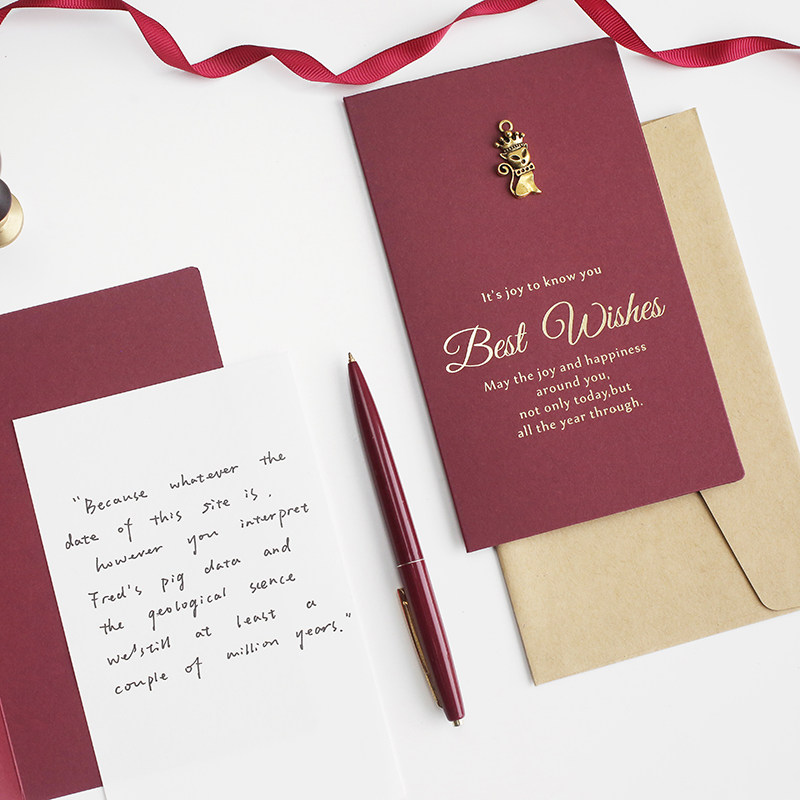 It's joy to know you
Best Wishes
May the joy and happiness
around you,
not only today,but
all the year through.
"Because whatever the
date of this site is,
however you interpret
Fred's pig data and
the geological scence
we'still at least a
couple of million years."